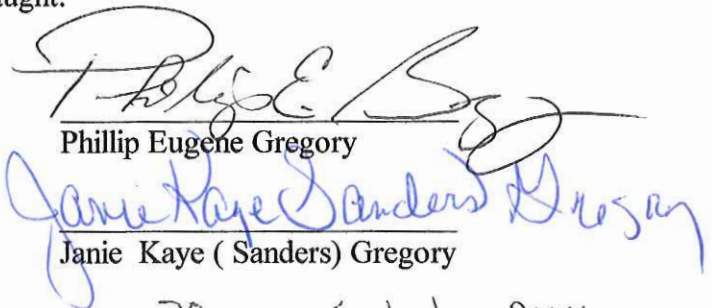 Phillip E
Phillip Eugene Gregory
Janie Kaye Sanders Gregory
Janie Kaye ( Sanders) Gregory